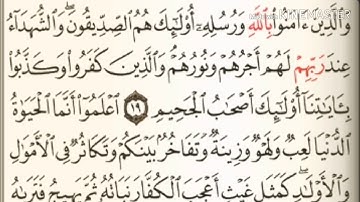 وَٱلَّذِينَ ءَامَنُوا۟ بِٱللَّهِ وَرُسُلِهِۦٓ أُو۟لَٰٓئِكَ هُمُ ٱلصِّدِّيقُونَ ۖ وَٱلشُّهَدَآءُ
عِندَ رَبِّهِمْ لَهُمْ أَجْرُهُمْ وَنُورُهُمْ ۖ وَٱلَّذِينَ كَفَرُوا۟ وَكَذَّبُوا۟
بِـَٔايَٰتِنَآ أُو۟لَٰٓئِكَ أَصْحَٰبُ ٱلْجَحِيمِ ١٩ ٱعْلَمُوٓا۟ أَنَّمَا ٱلْحَيَوٰةُ
ٱلدُّنْيَا لَعِبٌ وَلَهْوٌ وَزِينَةٌ وَتَفَاخُرٌۢ بَيْنَكُمْ وَتَكَاثُرٌ فِى ٱلْأَمْوَٰلِ
وَٱلْأَوْلَٰدِ ۖ كَمَثَلِ غَيْثٍ أَعْجَبَ ٱلْكُفَّارَ نَبَاتُهُۥ ثُمَّ يَهِيجُ فَتَرَىٰهُ